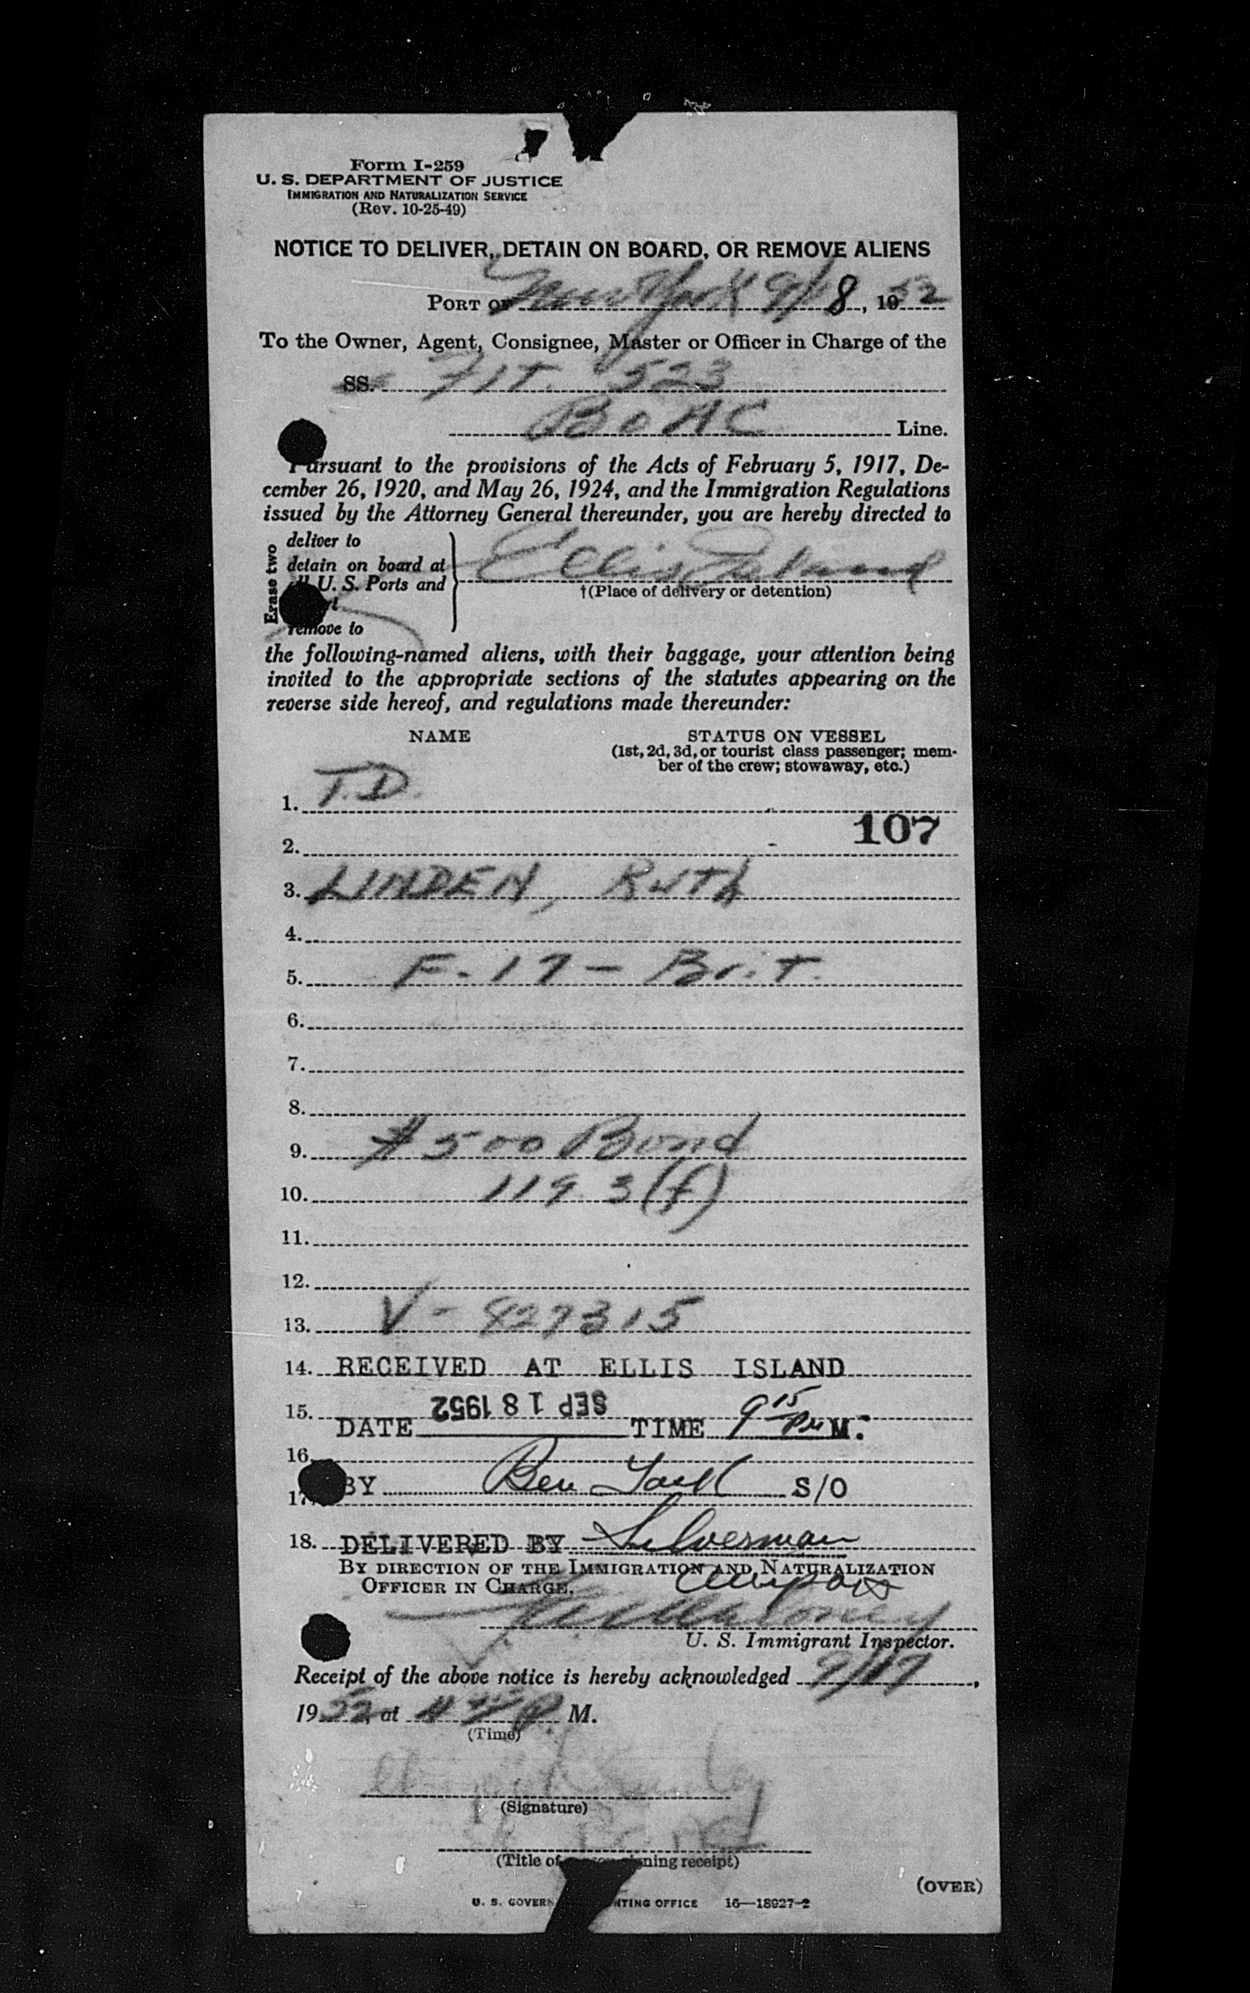 Form I-259
U. S. DEPARTMENT OF JUSTICE
IMMIGRATION AND NATURALIZATION SERVICE
(Rev. 10-25-49)
NOTICE TO DELIVER, DETAIN ON BOARD, OR REMOVE ALIENS
PORT OF New York 9/18, 1952
To the Owner, Agent, Consignee, Master or Officer in Charge of the
SS. Flt. 523
BOAC Line.
Pursuant to the provisions of the Acts of February 5, 1917, De-
cember 26, 1920, and May 26, 1924, and the Immigration Regulations
issued by the Attorney General thereunder, you are hereby directed to
Erase two
deliver to
detain on board at
U. S. Ports and
remove to
Ellis Island
†(Place of delivery or detention)
the following-named aliens, with their baggage, your attention being
invited to the appropriate sections of the statutes appearing on the
reverse side hereof, and regulations made thereunder:
NAME STATUS ON VESSEL
(1st, 2d, 3d, or tourist class passenger; mem-
ber of the crew; stowaway, etc.)
1. T.D.
107
2.
3. LINDEN, Ruth
4.
5. F-17-Brit.
6.
7.
8.
9. $500 Bond
10. 119 3(f)
11.
12.
13. V-927315
14. RECEIVED AT ELLIS ISLAND
15. DATE SEP 18 1952 TIME 9 15 PM M.
16.
17. BY Ben S/O
18. DELIVERED BY Silverman
BY DIRECTION OF THE IMMIGRATION AND NATURALIZATION
OFFICER IN CHARGE.
Maloney
U. S. Immigrant Inspector.
Receipt of the above notice is hereby acknowledged 9/17,
1952, at P. M.
(Time)
(Signature)
(Title of signing receipt)
(OVER)
U. S. GOVERN PRINTING OFFICE 16—18927-2